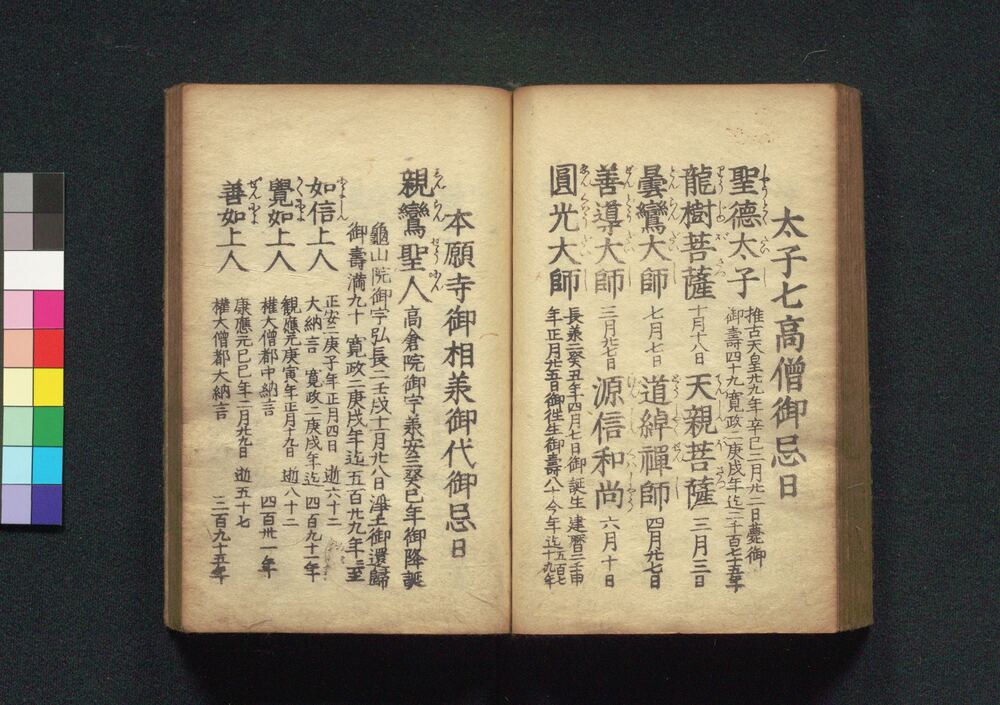 太子七高僧御忌日
聖德太子
推古天皇廿九年辛巳二月廿二日薨御
御壽四十九寛政二庚戌年迄二千百七十五年
龍樹菩薩 十月十八日 天親菩薩 三月三日
曇鸞大師 七月七日 道綽禪師 四月廿七日
善導大師 三月廿七日 源信和尚 六月十日
圓光大師
長兼二癸丑年四月七日御誕生 建暦二壬申
年正月廿五日御徃生御壽八十今年迄五百七十九年
本願寺御相義御代御忌日
親鸞聖人 高倉院御宇義安三癸巳年御降誕
龜山院御宇弘長二壬戌十一月廿八日淨土御還歸
御壽満九十 寛政二庚戌年迄五百廿九年ニ至
如信上人
正安二庚子年正月四日 逝六十二
大納言 寛政二庚戌年迄 四百九十一年
覺如上人
観應元庚寅年正月十九日 逝八十二
權大僧都中納言 四百卅一年
善如上人
康應元己巳年二月廿九日 逝五十七
權大僧都大納言 三百九十五年